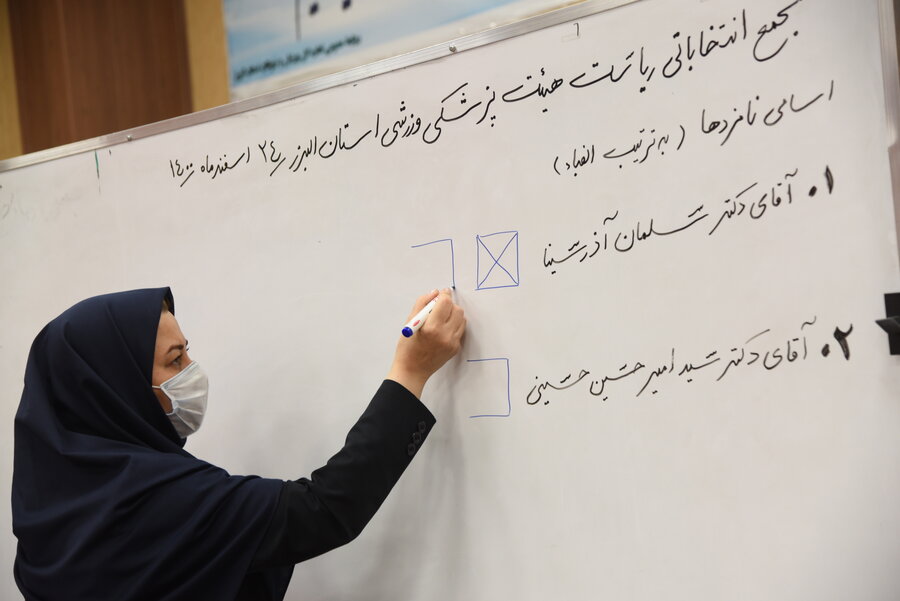 مجمع انتخاباتی ریاست هیئت پزشکی ورزشی استان البرز ۲۴ اسفندماه ۱۴۰۰
اسامی نامزدها (به ترتیب الفبا)
۱. آقای دکتر سلمان آذرسینا
۲. آقای دکتر سید امیر حسین حسینی